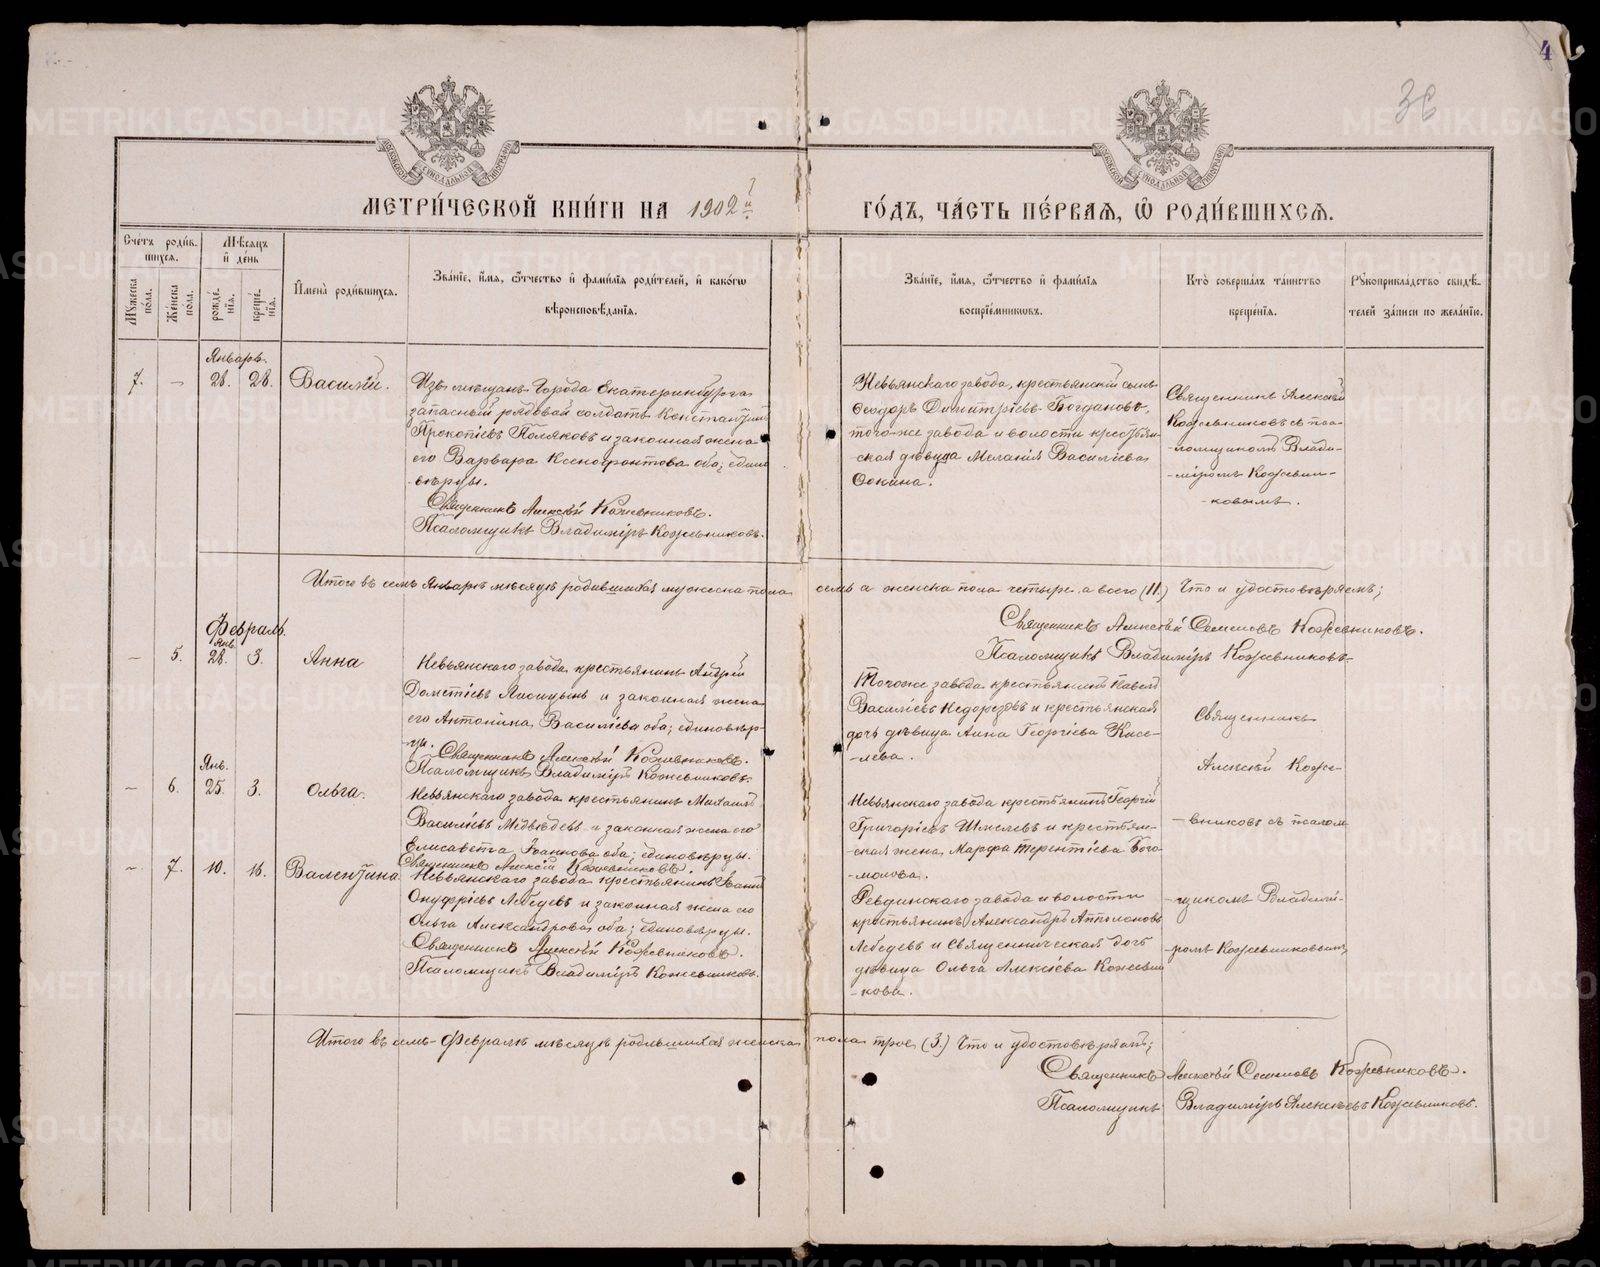 4
36
МЕТРИ́ЧЕСКОЙ КНИ́ГИ НА 1902 й
ГО́ДЪ, ЧА́СТЬ ПЕ́РВАѦ, Ѡ҆ РОДИ́ВШИХСѦ.
Счетъ роди́в-
шихсѧ.
Мѣ́сѧцъ
и҆ де́нь
Мꙋ́жеска
по́ла.
Же́нска
по́ла.
рожде́-
нїѧ.
креще́-
нїѧ.
И҆мена̀ роди́вшихсѧ.
Зва́нїе, и҆́мѧ, ѻ҆́тчество и҆ фами́лїѧ роди́телей, и҆ како́гѡ
вѣроисповѣ́данїѧ.
Зва́нїе, и҆́мѧ, ѻ҆́тчество и҆ фами́лїѧ
воспрїе́мникѡвъ.
Кто̀ соверша́лъ та́инство
креще́нїѧ.
Рꙋкоприкла́дство свидѣ́-
телей за́писи по жела́нїю.
Январь.
7. — 28. 28. Василій.
Изъ мѣщанъ города Екатеринбурга
запасный рядовой солдатъ Константинъ
Прокопіевъ Поляковъ и законная жена
его Варвара Ксенофонтова оба; едино-
вѣрцы.
Священникъ Алексѣй Кожевниковъ.
Псаломщикъ Владиміръ Кожевниковъ.
Невьянскаго завода, крестьянскій сынъ
Ѳеодоръ Димитріевъ Богдановъ,
того-же завода и волости крестьян-
-ская дѣвица Меланія Василіева
Ѳокина.
Священникъ Алексѣй
Кожевниковъ съ пса-
-ломщикомъ Влади-
-міромъ Кожевни-
-ковымъ.
Итого въ семъ Январѣ мѣсяцѣ родившихся мужеска пола семь а женска пола четыре, а всего (11.) Что и удостовѣряемъ;
Священникъ Алексѣй Семеновъ Кожевниковъ.
Псаломщикъ Владиміръ Кожевниковъ.
Февраль.
Янв.
— 5. 28. 3. Анна
Невьянскаго завода крестьянинъ Андрей
Дометіевъ Лисицынъ и законная жена
его Антонина Василіева оба; единовѣр-
-цы. Священникъ Алексѣй Кожевниковъ.
Псаломщикъ Владиміръ Кожевниковъ.
Тогоже завода крестьянинъ Павелъ
Василіевъ Недорезовъ и крестьянская
дочь дѣвица Анна Георгіева Кисе-
-лева.
Священникъ
Алексѣй Коже-
Янв.
— 6. 25. 3. Ольга.
Невьянскаго завода крестьянинъ Михаилъ
Василіевъ Медвѣдевъ и законная жена его
Елисавета Іоаннова оба; единовѣрцы.
Священникъ Алексѣй Кожевниковъ
Невьянскаго завода крестьянинъ Георгій
Григоріевъ Шмелевъ и крестьян-
-ская жена Марфа Терентіева Бого-
-молова.
-вниковъ съ псалом-
— 7. 10. 16. Валентина
Невьянскаго завода крестьянинъ Іоаннъ
Онуфріевъ Лебедевъ и законная жена его
Ольга Александрова оба; единовѣрцы.
Священникъ Алексѣй Кожевниковъ.
Псаломщикъ Владиміръ Кожевниковъ.
Ревдинскаго завода и волости
крестьянинъ Александръ Апполоновъ
Лебедевъ и Священническая дочь
дѣвица Ольга Алексіева Кожевни-
-кова.
-щикомъ Владимі-
-ромъ Кожевниковымъ,
Итого въ семъ Февралѣ мѣсяцѣ родившихся женска пола трое (3.) Что и удостовѣряемъ;
Священникъ Алексѣй Семеновъ Кожевниковъ.
Псаломщикъ Владиміръ Алексѣевъ Кожевниковъ.
METRIKI.GASO-URAL.RU